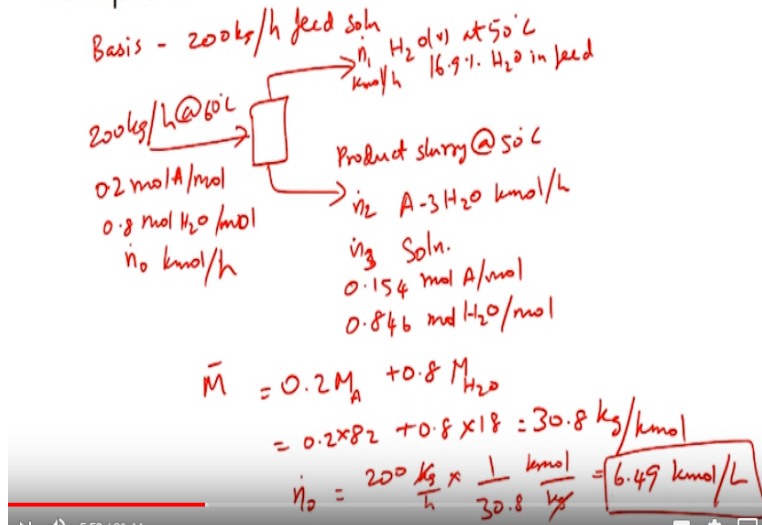 Basis - 200kg/h feed soln
ṅ₁ H₂O(v) at 50°C
kmol/h 16.9% H₂O in feed
200kg/h@60°C
0.2 mol A/mol
0.8 mol H₂O/mol
ṅ₀ kmol/h
Product slurry @ 50°C
ṅ₂ A-3H₂O kmol/h
ṅ₃ Soln.
0.154 mol A/mol
0.846 mol H₂O/mol
M̄ = 0.2M_A + 0.8 M_H₂O
= 0.2×82 + 0.8×18 = 30.8 kg/kmol
ṅ₀ = 200 kg/h × 1/30.8 kmol/kg = 6.49 kmol/h